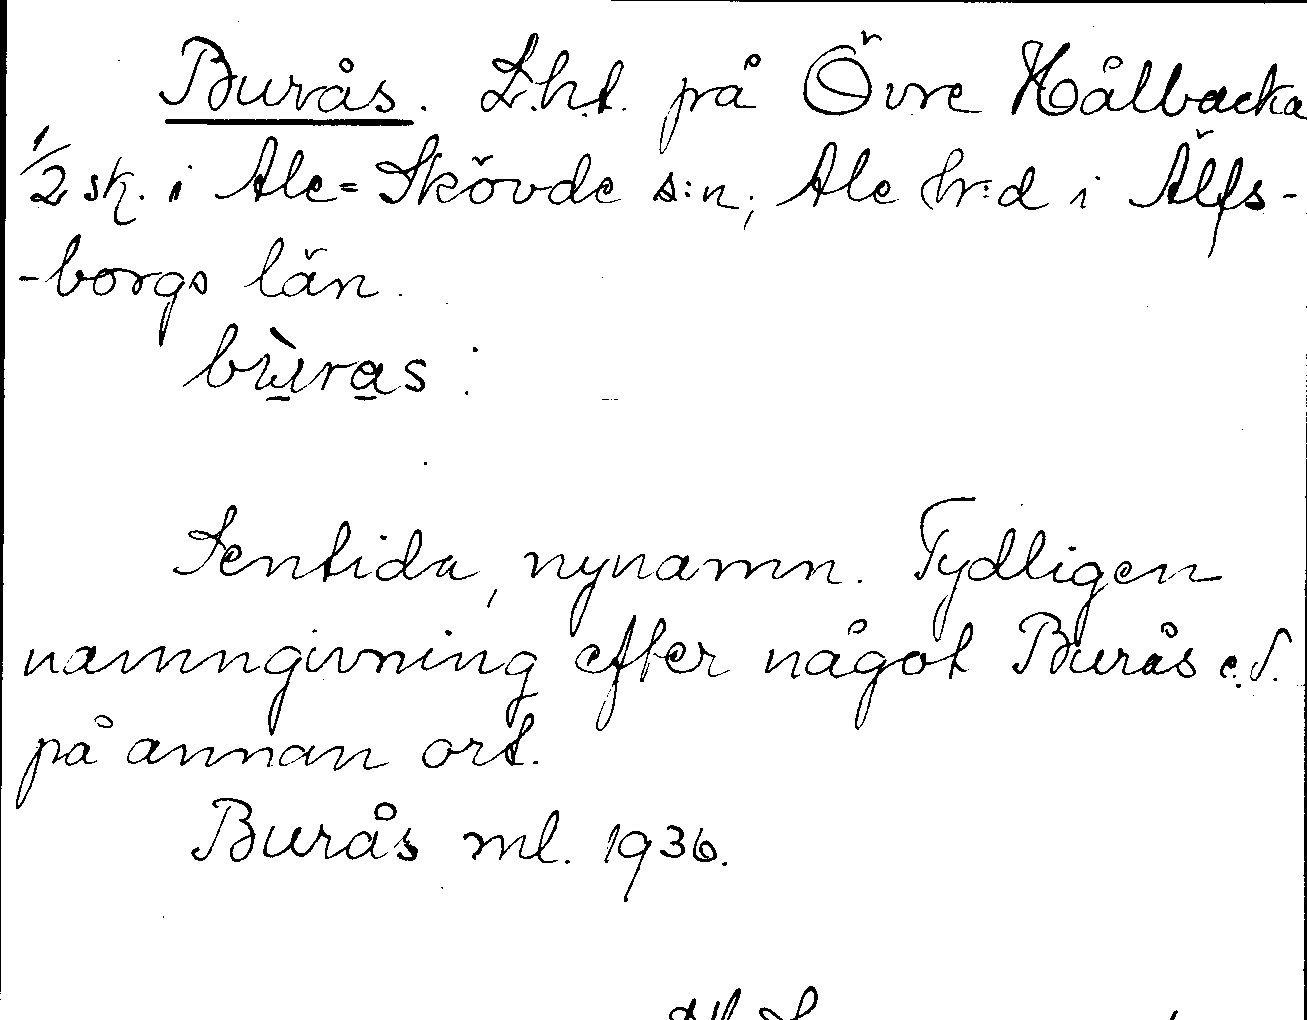 Burås. L.h.t. på Övre Hålbacka
1/2 sk. i Ale=Skövde s:n, Ale h:d i Älfs-
-borgs län.
bu̠̇ra̠s :
Sentida, nynamn. Tydligen
namngivning efter något Burås e.d.
på annan ort.
Burås ml. 1936.